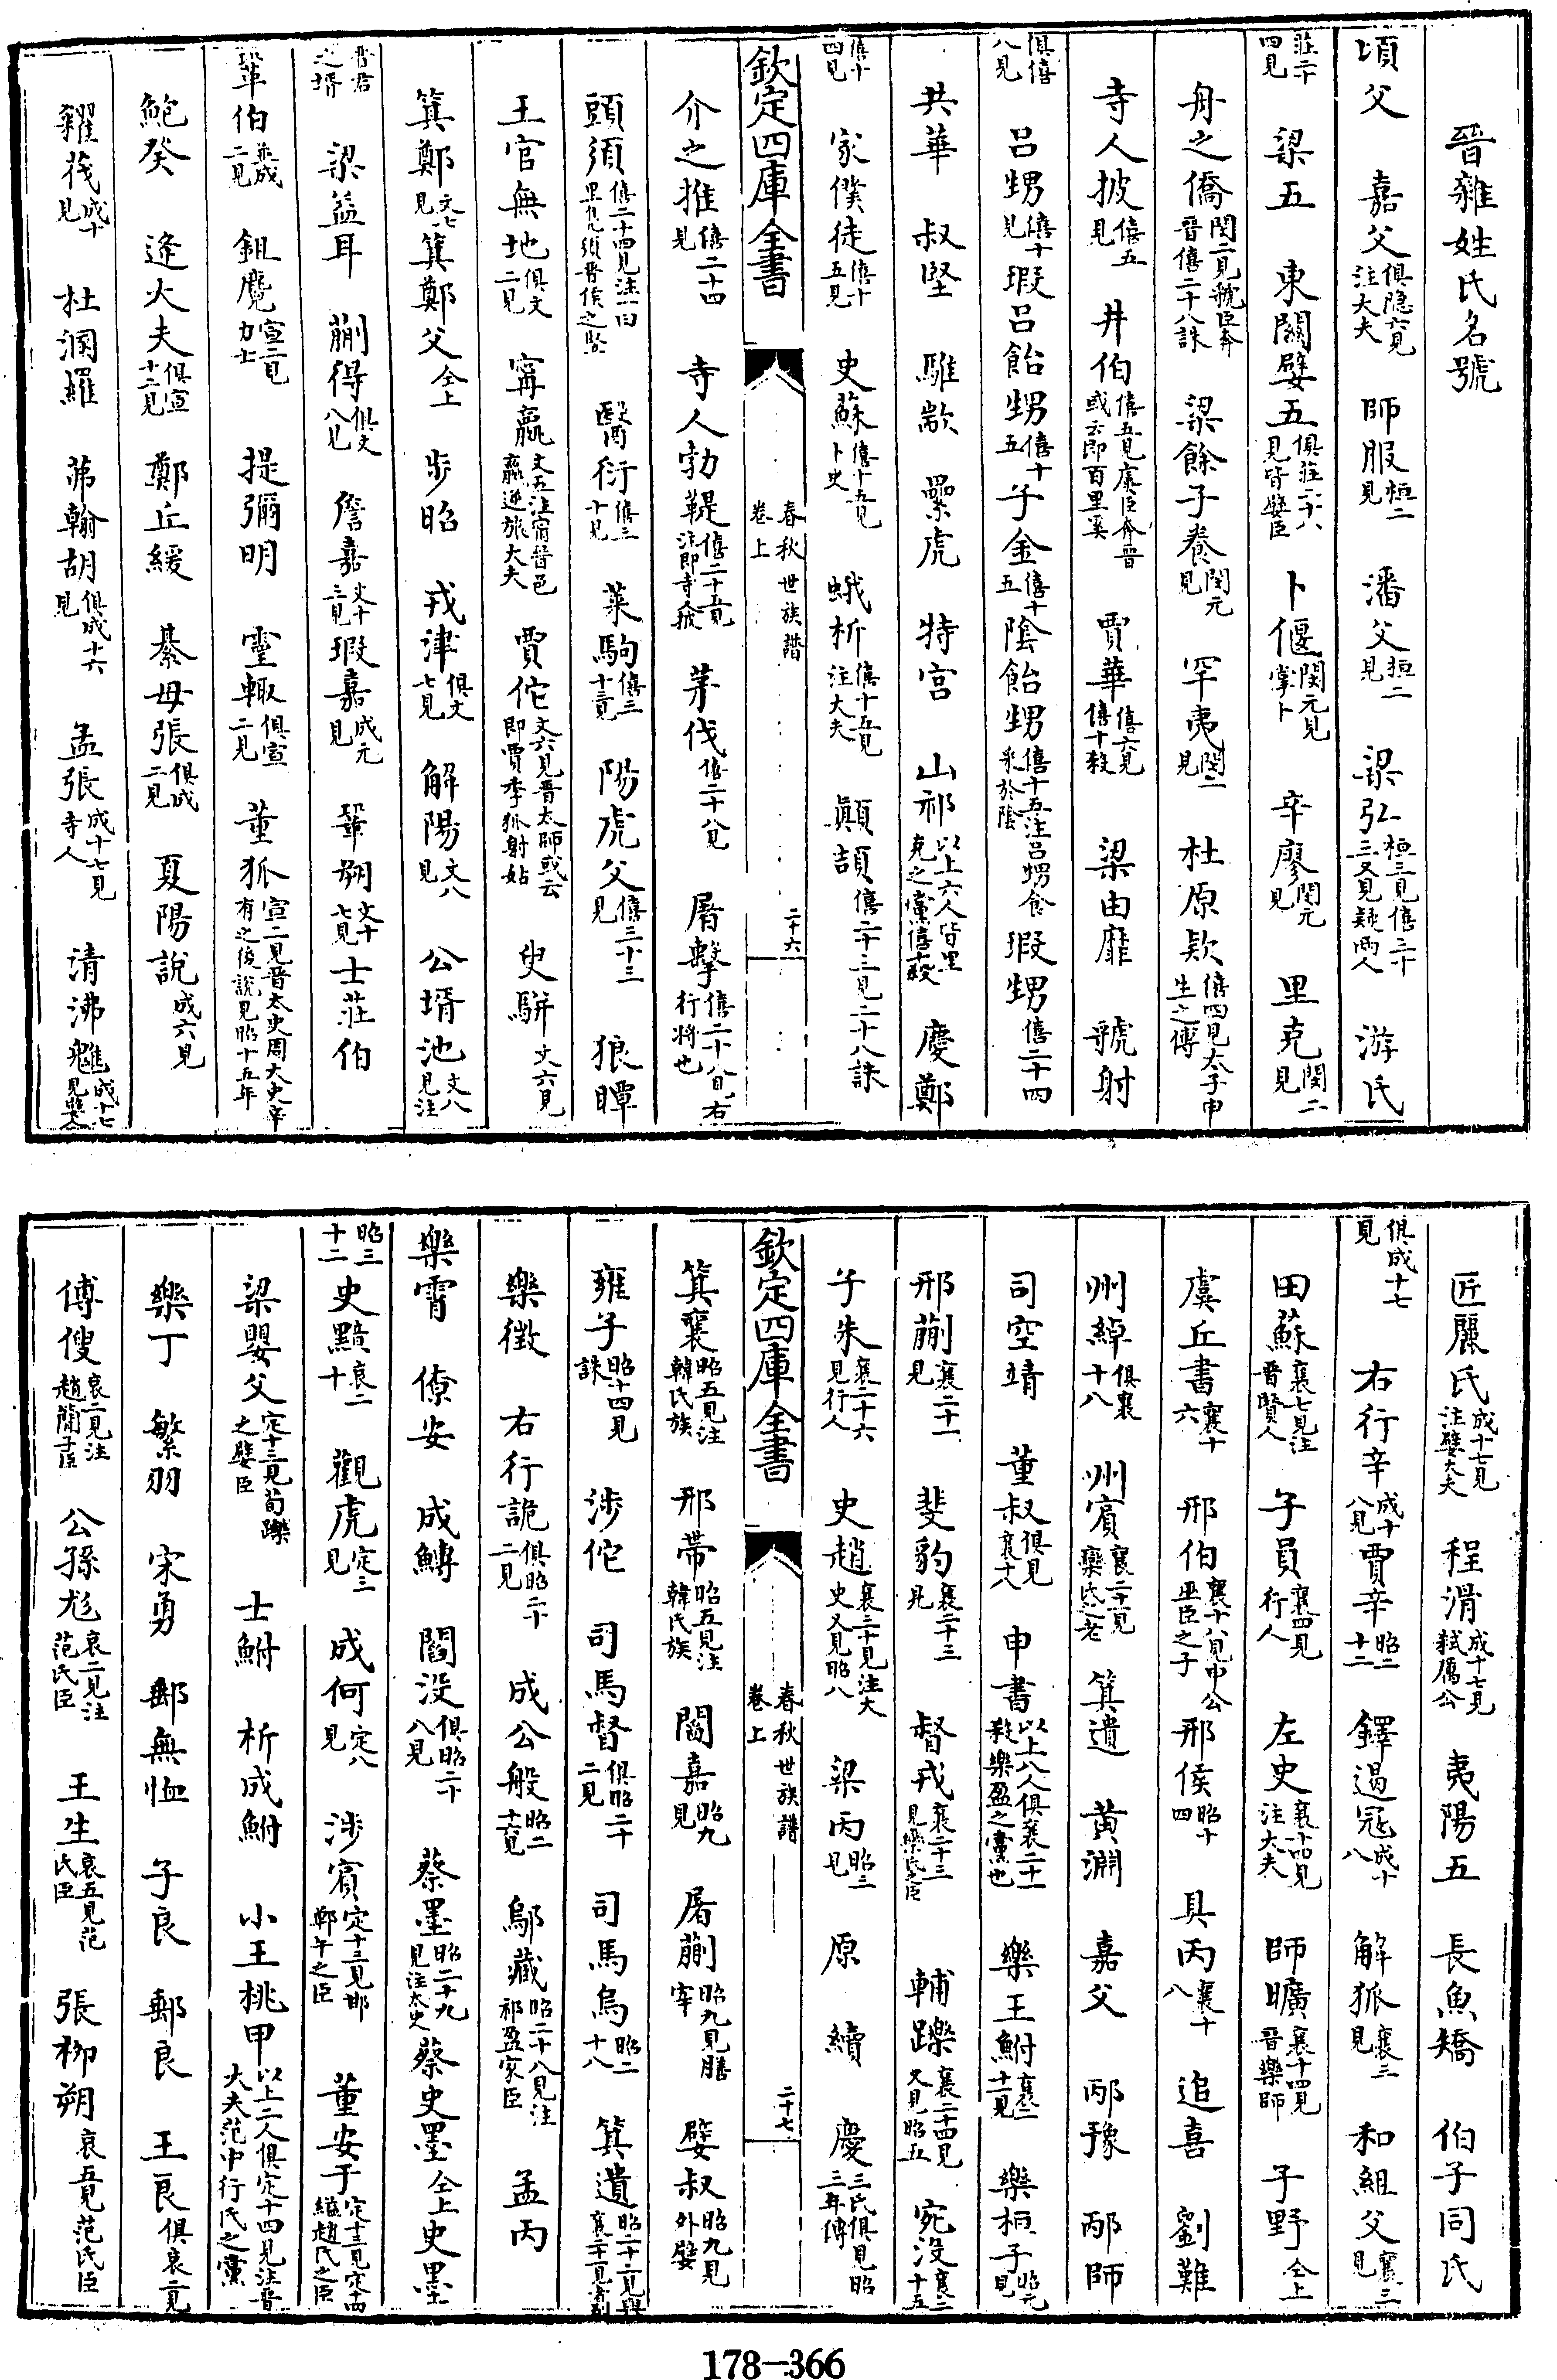 晉雜姓氏名號
頃父 嘉父俱隐六見注大夫 師服桓二見 潘父桓二見 梁弘桓三見僖三十三又見疑兩人 游氏
莊二十四見 梁五 東關嬖五俱莊二十八見皆嬖臣 卜偃閔元見掌卜 辛廖閔元見 里克閔二見
舟之僑閔二見虢臣奔晉僖二十八誅 梁餘子養閔元見 罕夷閔二見 杜原欵僖四見太子申生之傅
寺人披僖五見 井伯僖五見虞臣奔晉或云即百里奚 賈華僖六見僖十殺 梁由靡 虢射
俱僖八見 呂甥僖十見 瑕呂飴甥僖十五 子金僖十五 陰飴甥僖十五注呂甥食采於陰 瑕甥僖二十四
共華 叔堅 騅歂 纍虎 特宮 山祁以上六人皆里克之黨僖十殺 慶鄭
僖十四見 家僕徒僖十五見 史蘇僖十五見卜史 蛾析僖十五見注大夫 顚頡僖二十三見二十八誅
欽定四庫全書 春秋世族譜卷上 二十六
介之推僖二十四見 寺人勃鞮僖二十五見注即寺人披 茅伐僖二十八見 屠擊僖二十八見右行將也
頭須僖二十四見注一曰里鳧須晉侯之豎 醫衍僖三十見 萊駒僖三十三見 陽處父僖三十三見 狼瞫
王官無地俱文二見 甯嬴文五注甯晉邑嬴逆旅大夫 賈佗文六見晉太師或云即賈季狐射姑 臾駢文六見
箕鄭文七見 箕鄭父仝上 步昭 戎津俱文七見 解陽文八見 公壻池文八見注
晉君之壻 梁益耳 蒯得俱文八見 詹嘉文十三見 瑕嘉成元見 鞏朔文十七見 士莊伯
鞏伯並成二見 鉏麑宣二見力士 提彌明 靈輙俱宣二見 董狐宣二見晉太史周大史辛有之後說見昭十五年
鮑癸 逄大夫俱宣十二見 鄭丘緩 綦毋張俱成二見 夏陽說成六見
糴茷成十見 杜溷羅 茀翰胡俱成十六見 孟張成十七見寺人 清沸魋成十七見嬖人
匠麗氏成十七見注嬖大夫 程滑成十七見弒厲公 夷陽五 長魚矯 伯子同氏
俱成十七見 右行辛成十八見 賈辛昭二十二 鐸遏冦成十八 解狐襄三見 和組父襄三見
田蘇襄七見注晉賢人 子員襄四見行人 左史襄十四見注大夫 師曠襄十四見晉樂師 子野仝上
虞丘書襄十六 邢伯襄十八見申公巫臣之子 邢侯昭十四 具丙襄十八 追喜 劉難
州綽俱襄十八 州賓襄二十一見欒氏之老 箕遺 黄淵 嘉父 邴豫 邴師
司空靖 董叔俱見襄十八 申書以上八人俱襄二十一殺欒盈之黨也 樂王鮒襄二十一見 樂桓子昭元見
邢蒯襄二十一見 斐豹襄二十三見 督戎襄二十三見欒氏之臣 輔躒襄二十四見又見昭五 宛没襄二十五
子朱襄二十六見行人 史趙襄三十見注大史又見昭八 梁丙昭三見 原 續 慶三氏俱見昭三年傳
欽定四庫全書 春秋世族譜卷上 二十七
箕襄昭五見注韓氏族 邢帶昭五見注韓氏族 閻嘉昭九見 屠蒯昭九見膳宰 嬖叔昭九見外嬖
雍子昭十四見誅 涉佗 司馬督俱昭二十二見 司馬烏昭二十八 箕遺昭二十二見與襄二十一見者别
樂徵 右行詭俱昭二十二見 成公般昭二十六見 鄔藏昭二十八見注祁盈家臣 孟丙
樂霄 僚安 成鱄 閻没俱昭二十八見 蔡墨昭二十九見注太史 蔡史墨仝上 史墨
昭三十二 史黯哀二十 觀虎定三見 成何定八見 涉賓定十三見邯鄲午之臣 董安于定十三見定十四縊趙氏之臣
梁嬰父定十三見荀躒之嬖臣 士鮒 析成鮒 小王桃甲以上二人俱定十四見注晉大夫范中行氏之黨
樂丁 繁羽 宋勇 郵無恤 子良 郵良 王良俱哀二見
傅傁哀二見注趙簡子臣 公孫尨哀二見注范氏臣 王生哀五見范氏臣 張柳朔哀五見范氏臣
178-366